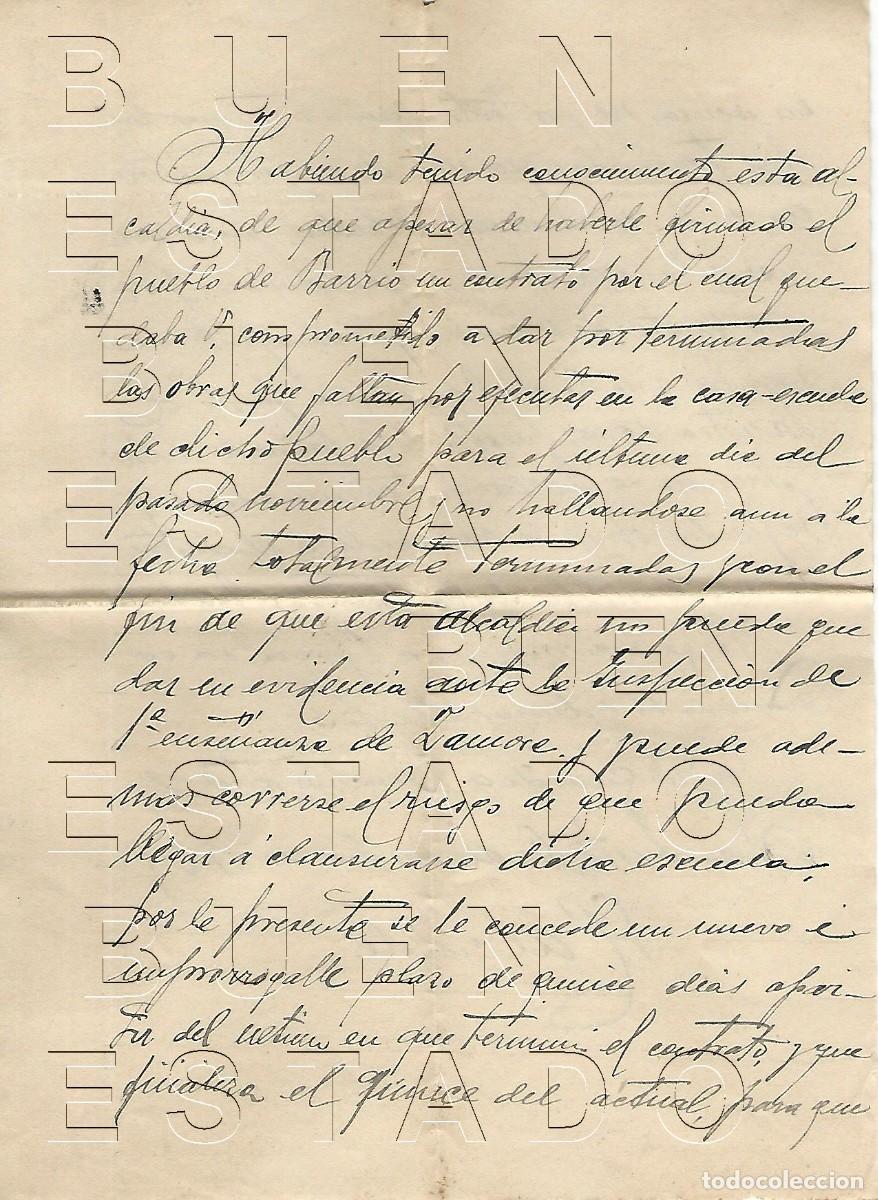 Habiendo tenido conocimiento esta al-
caldia, de que apezar de haberle firmado el
pueblo de Barrio un contrato por el cual que-
daba V. comprometido a dar por terminadas
las obras que faltan por ejecutar en la casa-escuela
de dicho pueblo para el ultimo dia del
pasado noviembre, no hallandose aun a la
fecha totalmente terminadas y con el
fin de que esta alcaldia no pueda que
dar en evidencia ante la Inspección de
1ª enseñanza de Zamora y puede ade-
mas correrse el riesgo de que pueda
llegar á clausurarse dicha escuela;
por la presente se le concede un nuevo é
improrrogable plazo de quince dias apar-
tir del ultimo en que termino el contrato, y que
finaliza el quince del actual, para que
BUEN
ESTADO
BUEN
ESTADO
BUEN
ESTADO
BUEN
ESTADO
todocoleccion